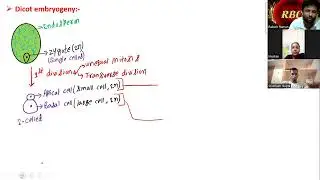 Dicot embryogeny:-
Endosperm
Zygote (2n)
(Single celled)
1st division
unequal mitosis
Transverse division
Apical cell (small cell, 2n)
Basal cell (large cell, 2n)
2-celled
RBC